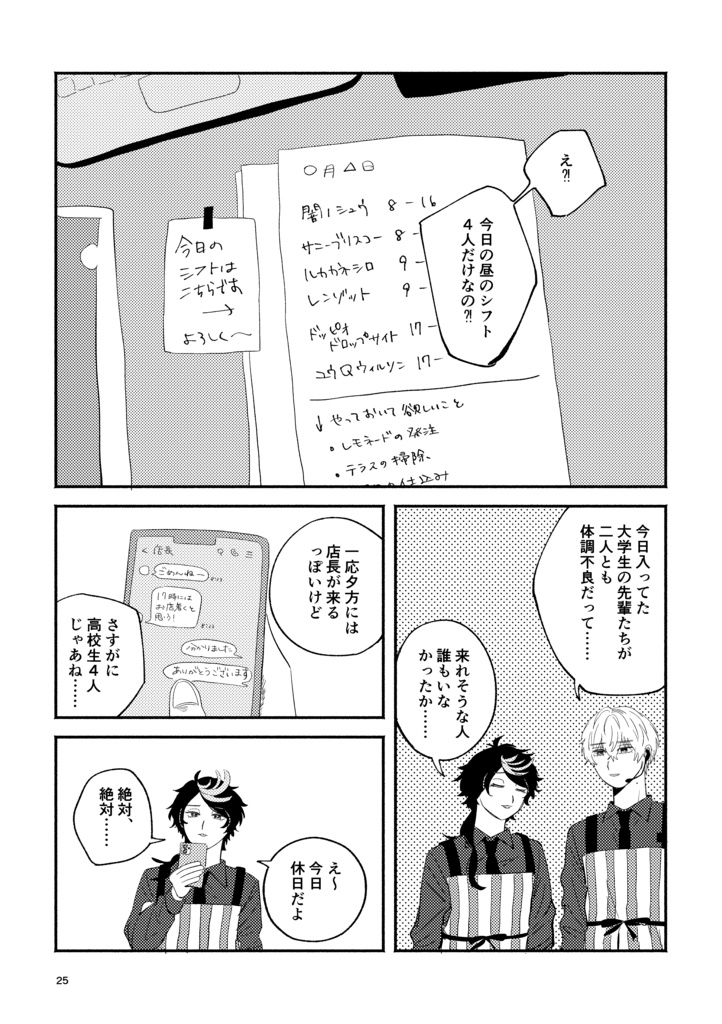 え⁈
今日の昼のシフト
4人だけなの⁈
〇月△日
闇ノシュウ 8-16
サニーブリスコー 8-
ルカカネシロ 9-
レンゾット 9-
ドッピオ
ドロップサイト 17-
ユウQウィルソン 17-
↓やっておいて欲しいこと
・レモネードの発注
・テラスの掃除、
仕込み
今日の
シフトは
こちらです
→
よろしく〜
今日入ってた
大学生の先輩たちが
二人とも
体調不良だって……
来れそうな人
誰もいな
かったか……
一応夕方には
店長が来る
っぽいけど
<店長
ごめんねー
17時には
お店着くと
思う!
わかりました
ありがとうございます
さすがに
高校生4人
じゃあね……
え〜
今日
休日だよ
絶対、
絶対……
25